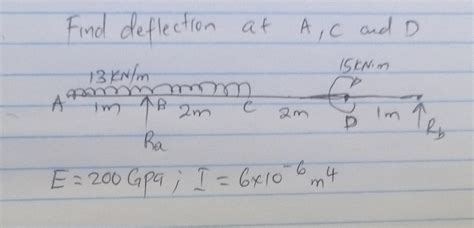 Find deflection at A, C and D
13KN/m
15KN.m
A 1m B 2m C 2m D 1m
Ra
Rb
E = 200 Gpa ; I = 6x10⁻⁶ m⁴